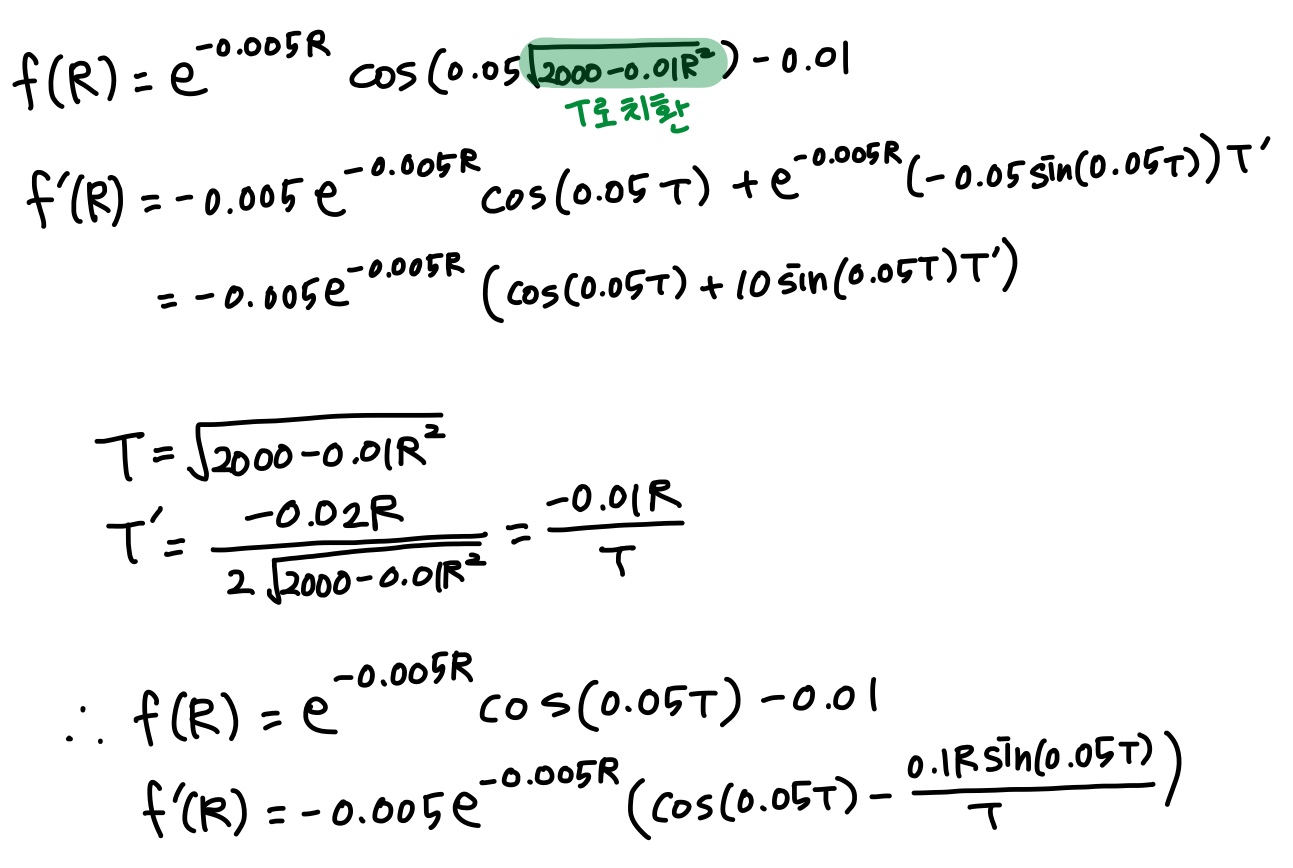 f(R) = e^{-0.005R} cos(0.05√(2000-0.01R²)) - 0.01
T로 치환
f'(R) = -0.005e^{-0.005R} cos(0.05T) + e^{-0.005R}(-0.05 sin(0.05T))T'
= -0.005e^{-0.005R} (cos(0.05T) + 10 sin(0.05T)T')
T = √(2000-0.01R²)
T' = \frac{-0.02R}{2√(2000-0.01R²)} = \frac{-0.01R}{T}
∴ f(R) = e^{-0.005R} cos(0.05T) - 0.01
f'(R) = -0.005e^{-0.005R} (cos(0.05T) - \frac{0.1R sin(0.05T)}{T})